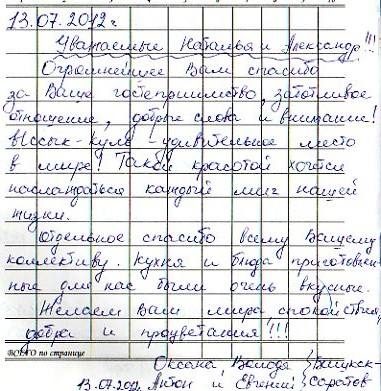 13.07.2012 г.
Уважаемые Наталья и Александр!!!
Огромнейшее Вам спасибо
за Ваше гостеприимство, заботливое
отношение, добрые слова и внимание!
Иссык-Куль - удивительное место
в мире! Такой красотой хочется
наслаждаться каждый миг нашей
жизни.
Отдельное спасибо всему Вашему
коллективу. Кухня и блюда приготовлен
ные для нас были очень вкусные.
Желаем Вам мира, спокойствия,
добра и процветания!!!
ВСЕГО по странице
Оксана, Володя } Бишкек-
13.07.2012 Антон и Евгений } Саратов